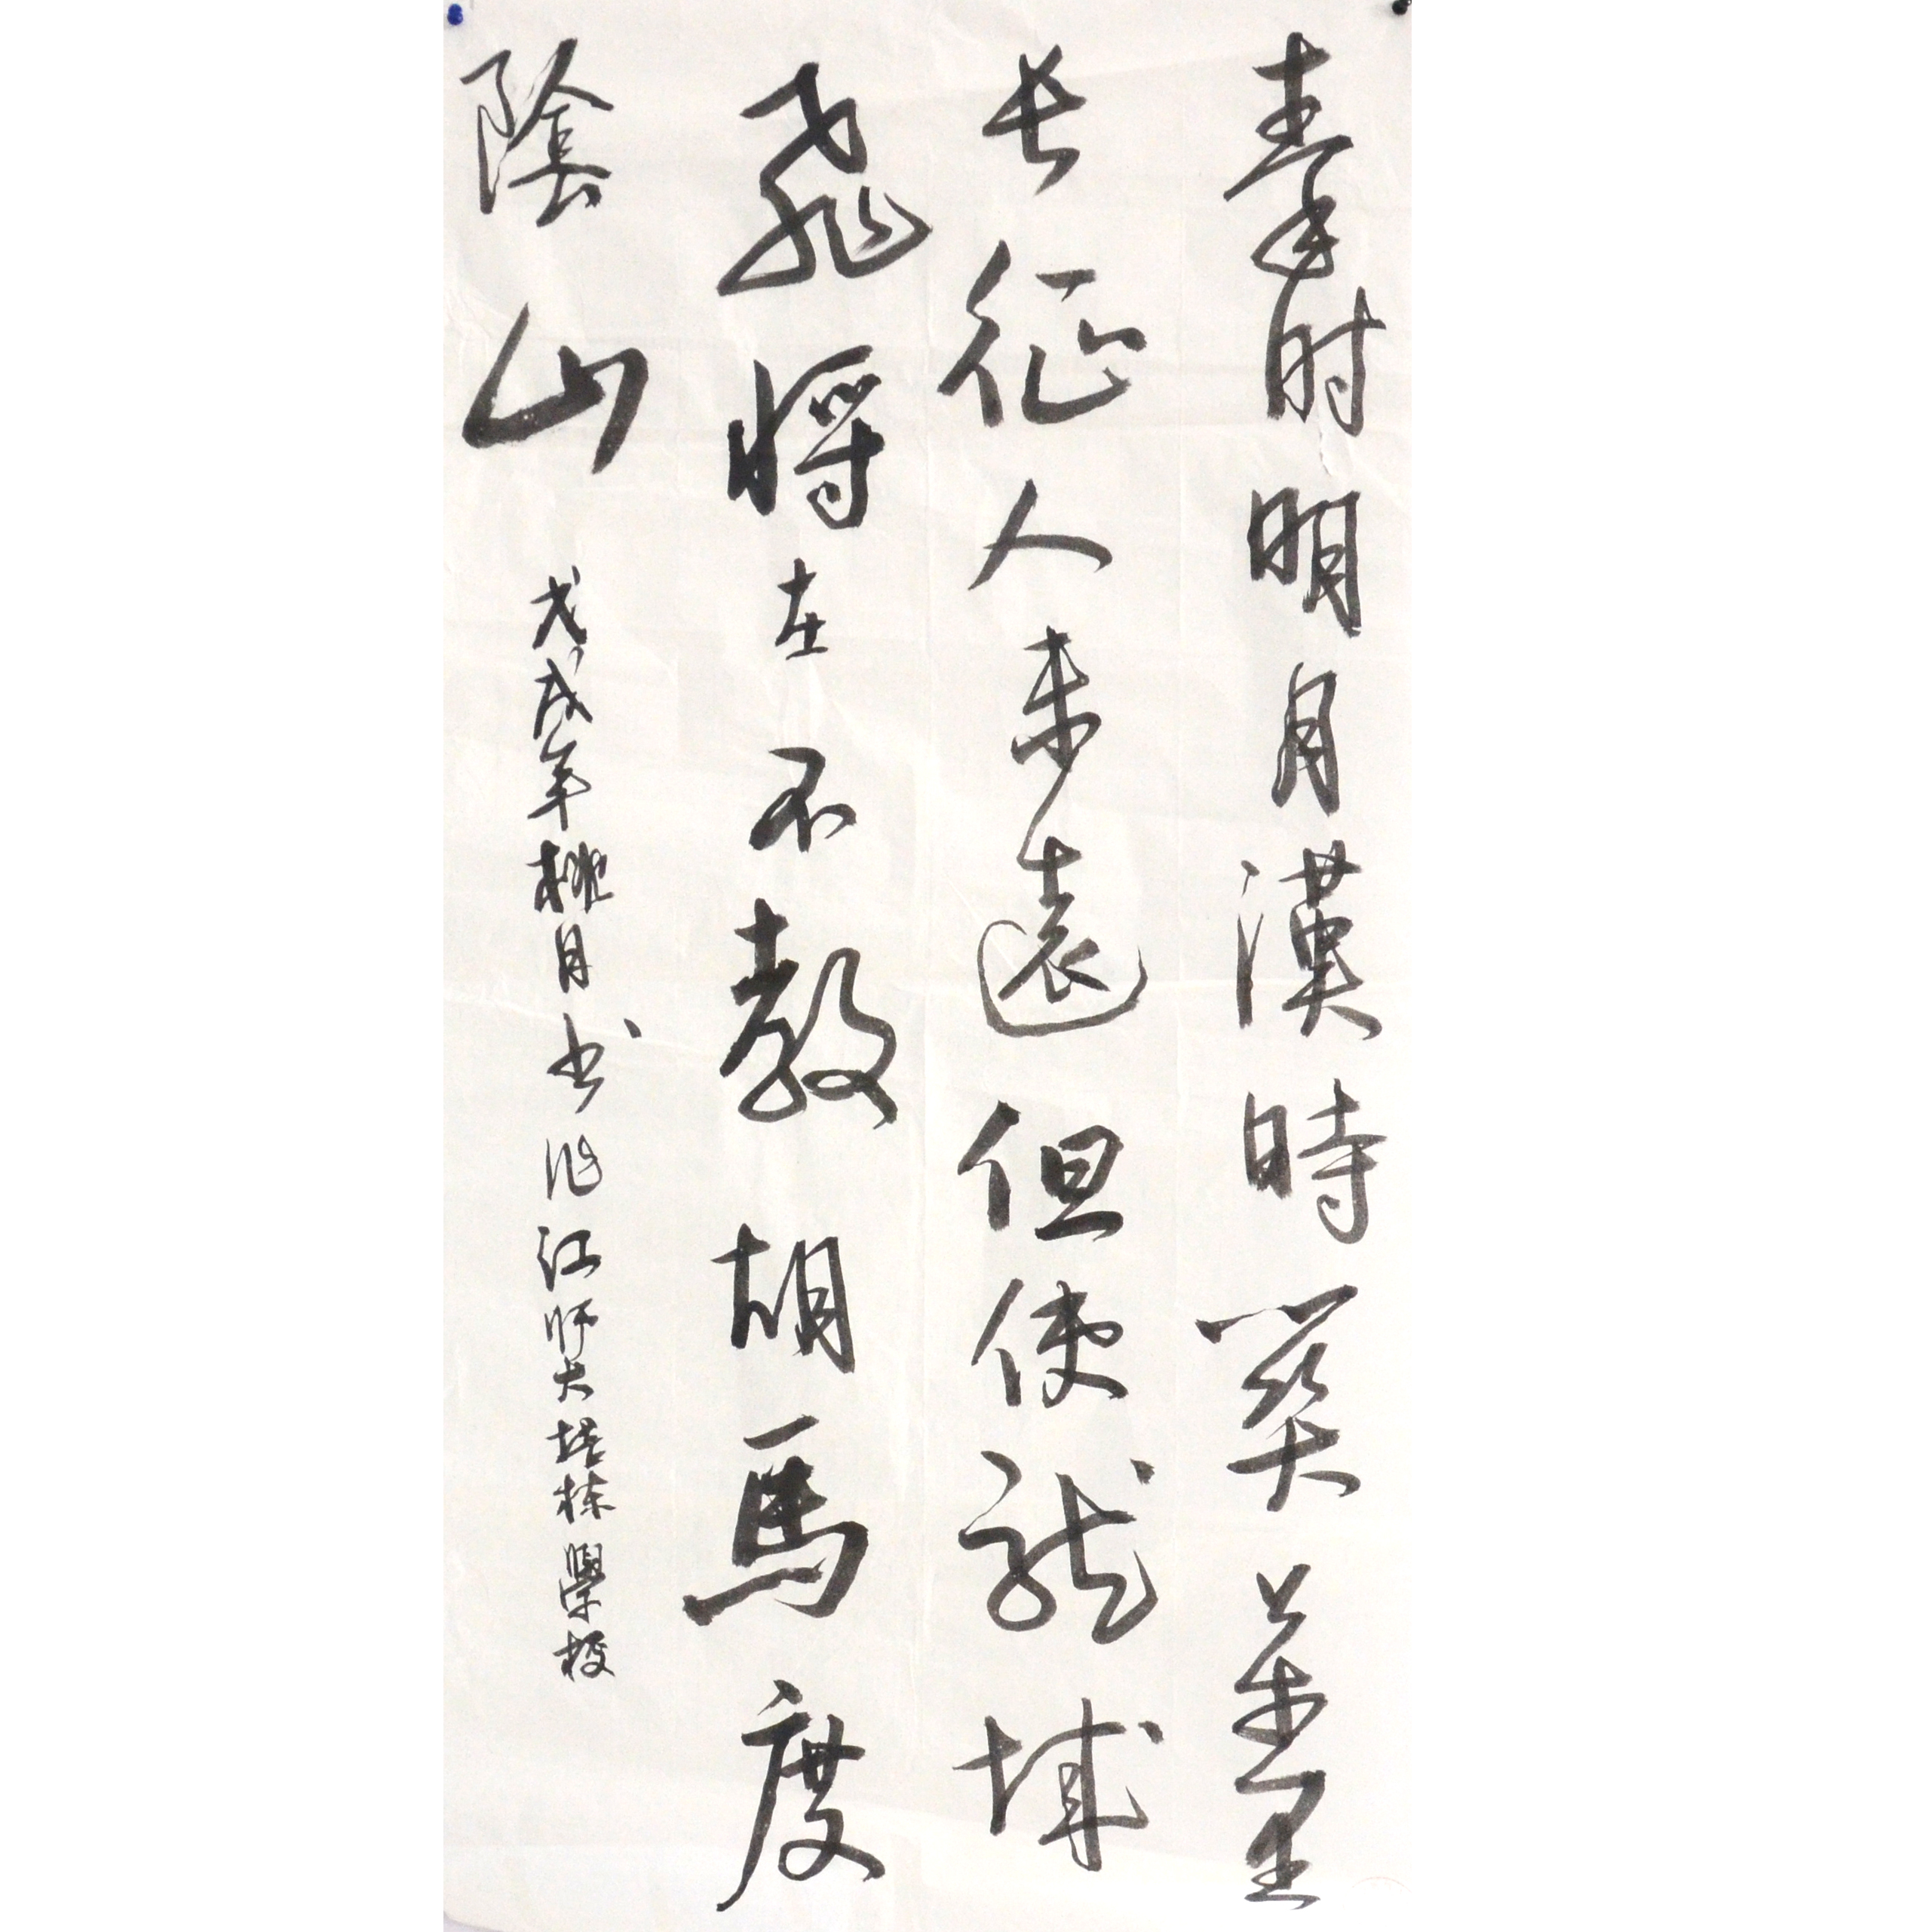 秦时明月漢時関萬里
長征人未還但使龍城
飛將在不教胡馬度
陰山
戊戌年桃月书於江师大培栋學校